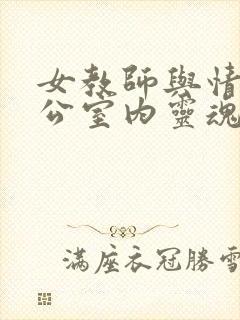 女教師與情
公室內靈魂
滿座衣冠勝雪